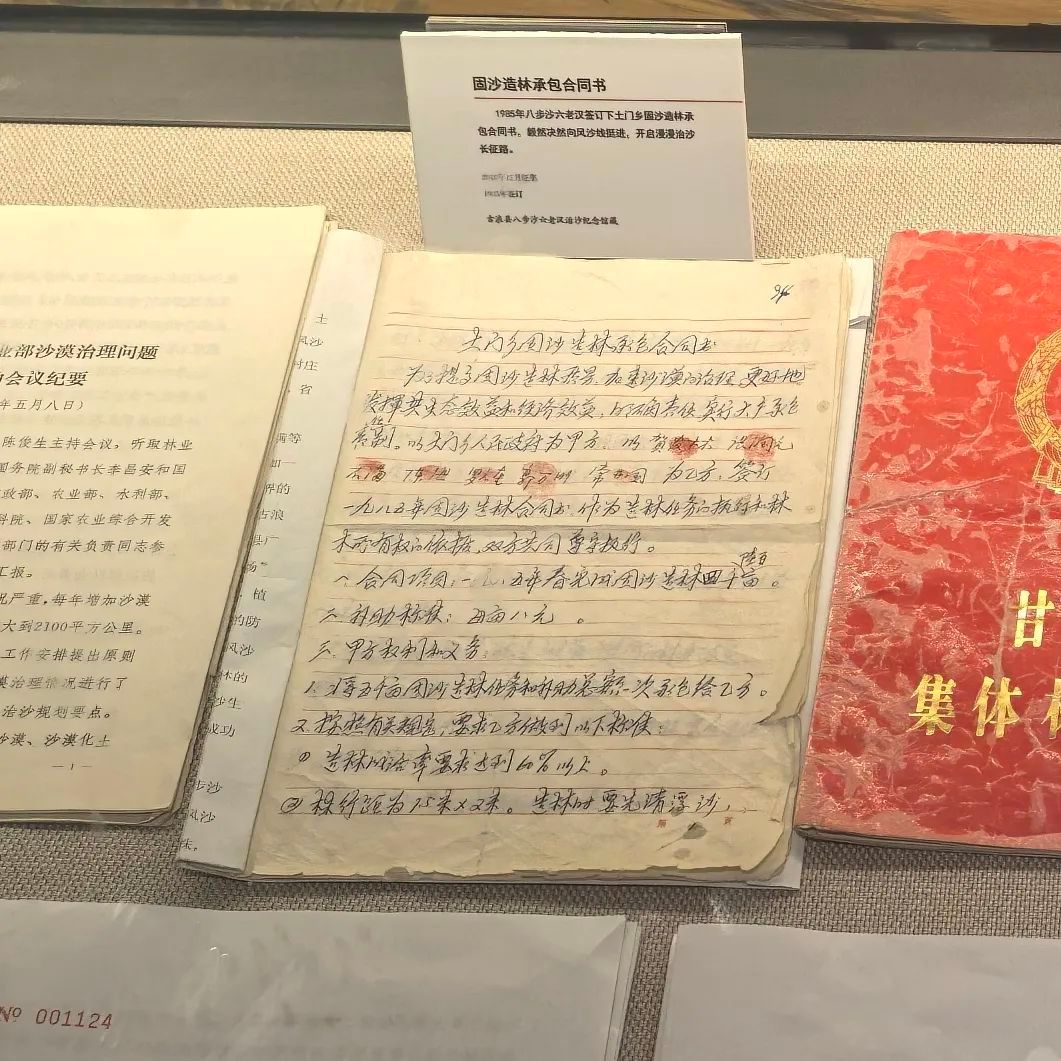 固沙造林承包合同书
1985年八步沙六老汉签订下土门乡固沙造林承
包合同书。毅然决然向风沙线挺进,开启漫漫治沙
长征路。
1985年签订
古浪县八步沙六老汉治沙纪念馆藏
业部沙漠治理问题
会议纪要
年五月八日)
陈俊生主持会议,听取林业
国务院副秘书长李昌安和国
政部、农业部、水利部、
科院、国家农业综合开发
部门的有关负责同志参
汇报。
况严重,每年增加沙漠
大到2100平方公里。
工作安排提出原则
漠治理情况进行了
治沙规划要点。
沙漠、沙漠化土
— 1 —
土
风沙
村庄
,省
满等
如一
界的
古浪
县广
场
,植
的防
风沙
林的
沙生
成功
步沙
风沙
林。
土门乡固沙造林承包合同书
为了提高固沙造林质量,加速沙漠的治理,更好地
发挥其生态效益和经济效益,明确责任,实行大户承包
。以土门乡人民政府为甲方,以贺发林 张润元
为乙方,签订
一九八五年固沙造林合同书,作为造林任务的执行和林
木所有权的依据,双方共同遵守执行。
一、合同项目:一九八五年春完成固沙造林四千亩。
二、补助标准:每亩八元。
三、甲方权利和义务:
1.将五千亩固沙造林任务和补助总额一次承包给乙方。
2.按照有关规定,要求乙方做到以下标准:
① 造林成活率要求达到40%以上。
② 株行距为1.5米×2米。造林时要先清浮沙,
第 页
甘
集体林
№ 001124